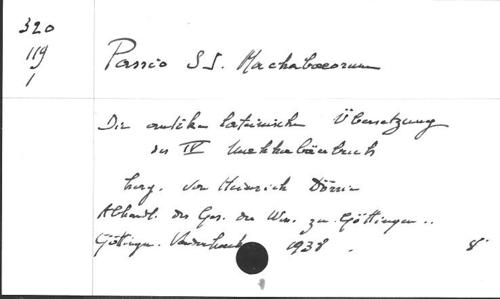 320
119
1
Passio SS. Machabaeorum
Die antike lateinische Übersetzung
des IV Makkabäerbuch
herg. von Heinrich Dörrie
Abhandl. der Ges. der Wiss. zu Göttingen..
Göttingen. Vandenhoeck 1938. 8°